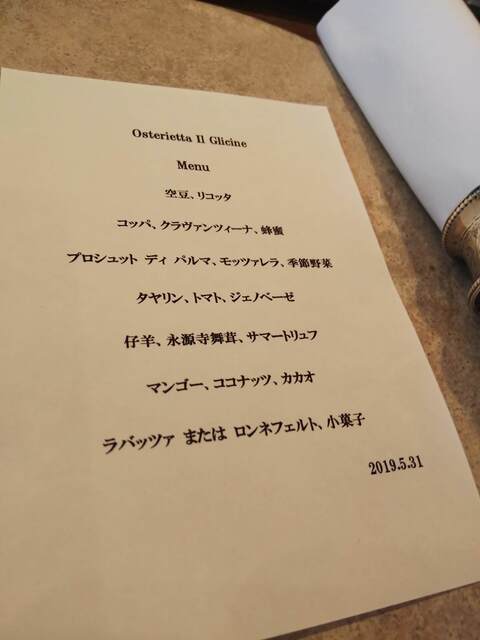 Osterietta Il Glicine
Menu
空豆、リコッタ
コッパ、クラヴァンツィーナ、蜂蜜
プロシュット ディ パルマ、モッツァレラ、季節野菜
タヤリン、トマト、ジェノベーゼ
仔羊、永源寺舞茸、サマートリュフ
マンゴー、ココナッツ、カカオ
ラバッツァ または ロンネフェルト、小菓子
2019.5.31